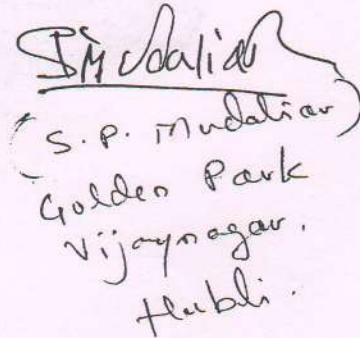 SMudaliar
(S.P. Mudaliar)
Golden Park
Vijaynagar.
Hubli.